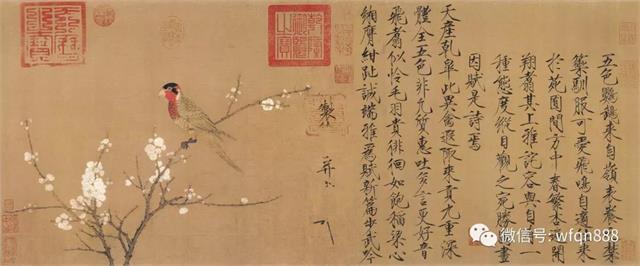 五色鸚鵡來自嶺表養之禁
籞馴服可愛飛鳴自適往來
於苑囿間方中春繁杏開
翔翥其上雅詫容與自一
種態度縱目觀之宛勝圖畫
因賦是詩焉
天產乾皋此異禽遐陬來貢九重深
體全五色非凡質惠吐多言更好音
飛翥似怜毛羽貴徘徊如飽稻粱心
緗膺紺趾誠端雅為賦新篇步武吟
製
微信号: wfqn888